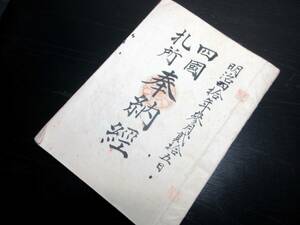 明治四拾年参月貳拾五日
四國
札所
奉納經